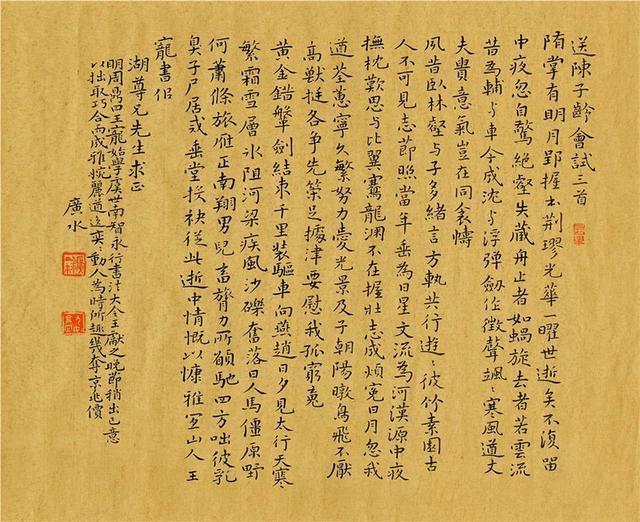 送陳子齡會試三首
隋掌有明月郢握出荆璆光華一曜世逝矣不復留
中夜忽自驚絶壑失藏舟止者如蝸旋去者若雲流
昔為輔与車今成沈与浮彈劒作徵聲颯〻寒風道丈
夫貴意氣豈在同衾幬
夙昔臥林壑与子多緒言方執共行遊〻彼竹素園古
人不可見志節照當年垂為日星文流為河漢源中夜
撫枕歎思与比翼騫龍淵不在握壯志成煩冤日月忽我
道荃蕙寧久繁努力愛光景及子朝陽暾鳥飛不厭
高獸挺各爭先策足據津要慰我孤窮
黄金錯鞶劍結束千里裝驅車向燕趙日夕見太行天寒
繁霜雪層冰阻河梁疾風沙礫奮落日人馬僵原野
何蕭條旅雁正南翔男兒畜膂力所願馳四方咄彼乳
臭子尸居或垂堂揆袂從此逝中情慨以慷雅宜山人王
寵書
湖尊兄先生求正
明周鼎曰王寵始學虞世南智永行書法大令王獻之晚節稍出己意
以拙取巧合而成雅婉麗遒逸奕〻動人為時所趣幾奪京兆價
廣水